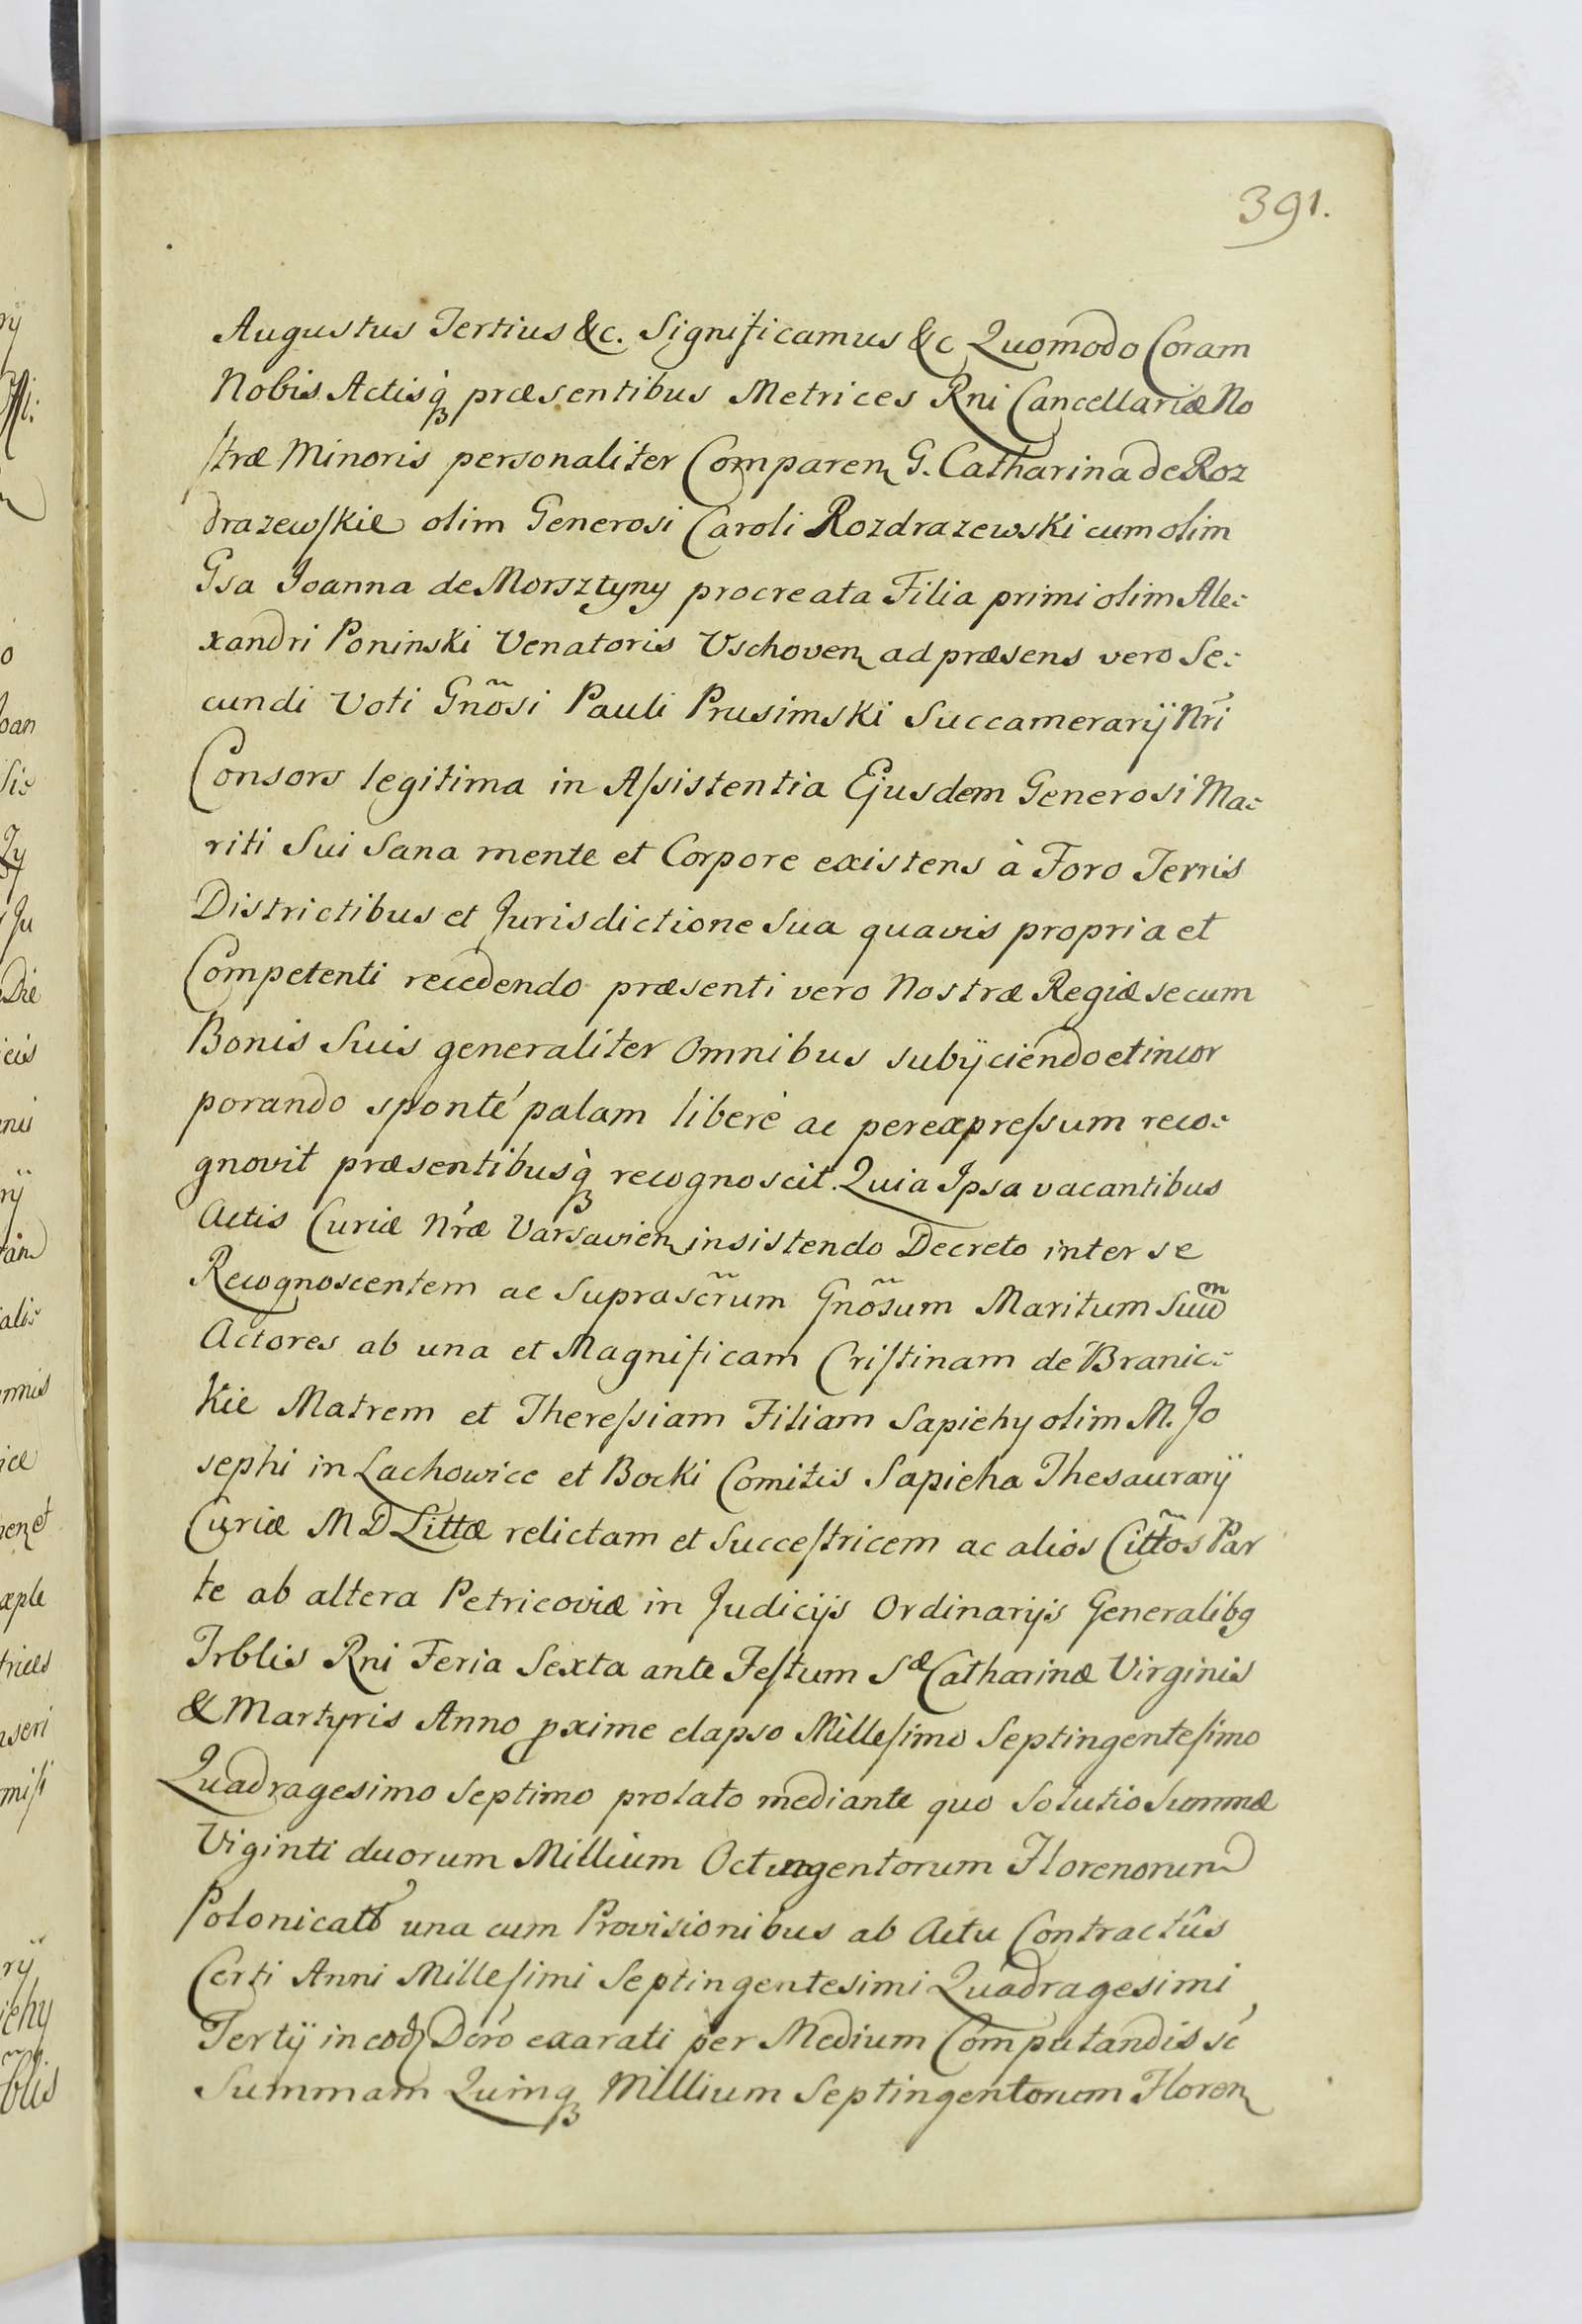 391.
Augustus Tertius &c. Significamus &c Quomodo Coram
Nobis Actisq₃ præsentibus Metrices Rni Cancellariæ No
stræ Minoris personaliter Comparen G. Catharina de Roz
drazewskie olim Generosi Caroli Rozdrazewski cum olim
Gsa Joanna de Morsztyny procreata Filia primi olim Ale:
xandri Poninski Venatoris Vschoven ad præsens vero Se:
cundi Voti Gnõsi Pauli Prusimski Succamerarÿ Nri
Consors legitima in Assistentia Ejusdem Generosi Ma:
riti Sui Sana mente et Corpore existens à Foro Terris
Districtibus et Jurisdictione Sua quavis propria et
Competenti recedendo præsenti vero Nostræ Regiæ se cum
Bonis Suis generaliter Omnibus subÿciendo et incor
porando sponté palam liberè ac per expressum reco:
gnovit præsentibusq₃ recognoscit. Quia Ipsa vacantibus
Actis Curiæ Nræ Varsavien insistendo Decreto inter se
Recognoscentem ac Suprascr̃um Gnõsum Maritum Suum
Actores ab una et Magnificam Cristinam de Branic:
kie Matrem et Theressiam Filiam Sapiehy olim M. Jo
sephi in Lachowice et Bocki Comitis Sapieha Thesaurarÿ
Curiæ M D Littæ relictam et Succestricem ac alios Citt̃os Par
te ab altera Petricoviæ in Judicÿs Ordinarÿs Generalibg
Trblis Rni Feria Sexta ante Festum Sæ Catharinæ Virginis
& Martyris Anno pxime elapso Millesimo Septingentesimo
Quadragesimo Septimo prolato mediante quo Solutio Summæ
Viginti duorum Millium Octingentorum Florenorum
Polonical una cum Provisionibus ab Actu Contractûs
Certi Anni Millesimi Septingentesimi Quadragesimi
Tertÿ in eod Dcro exarati per Medium Computandis sc
Summam Quinq₃ Millium Septingentorum Floren